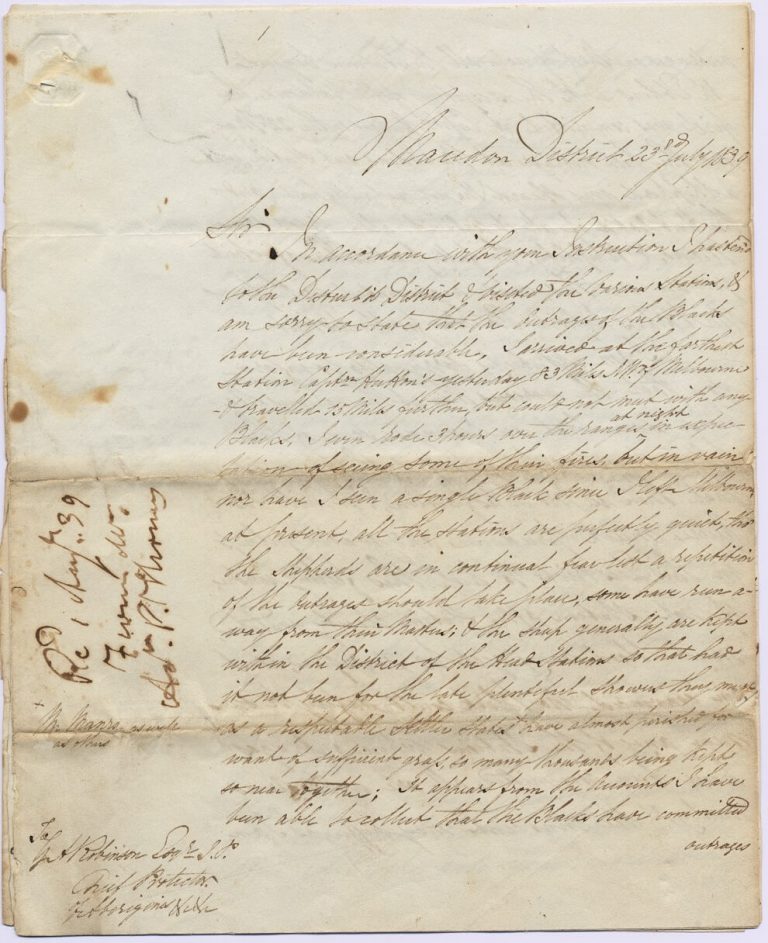 Macedon District 23rd July 1839
Sir
In accordance with your Instruction I hasten'd
to the Disturb'd District & visited the Various Stations, &
am sorry to state that the Outrages of the Blacks
have been considerable, I arrived at the farthest
Station Captn Hutton's yesterday 83 Miles NW of Melbourne
& travelled 15 Miles further, but could not meet with any
Blacks, I even rode 3 hours over the ranges at night in expec-
tation of seeing some of their fires, but in vain
nor have I seen a single Black since I left Melbourne,
at present, all the stations are perfectly quiet, tho
the Shepherds are in continual fear lest a repetition
of the outrages should take place, some have run a-
way from their Masters; & the sheep generally are kept
within the District of the Head Stations so that had
it not been for the late plentiful showers they must
as a respectable Settler states have almost perished for
want of sufficient grass, so many thousands being kept
so near together; It appears from the Accounts I have
been able to collect that the Blacks have committed
outrages
Rec 1 Augt. 39
From Mr.
Asst. P. Thomas
Mr Munro as well
as others
To
G A Robinson Esqre J.P.
Chief Protector
of Aborigines &c &c